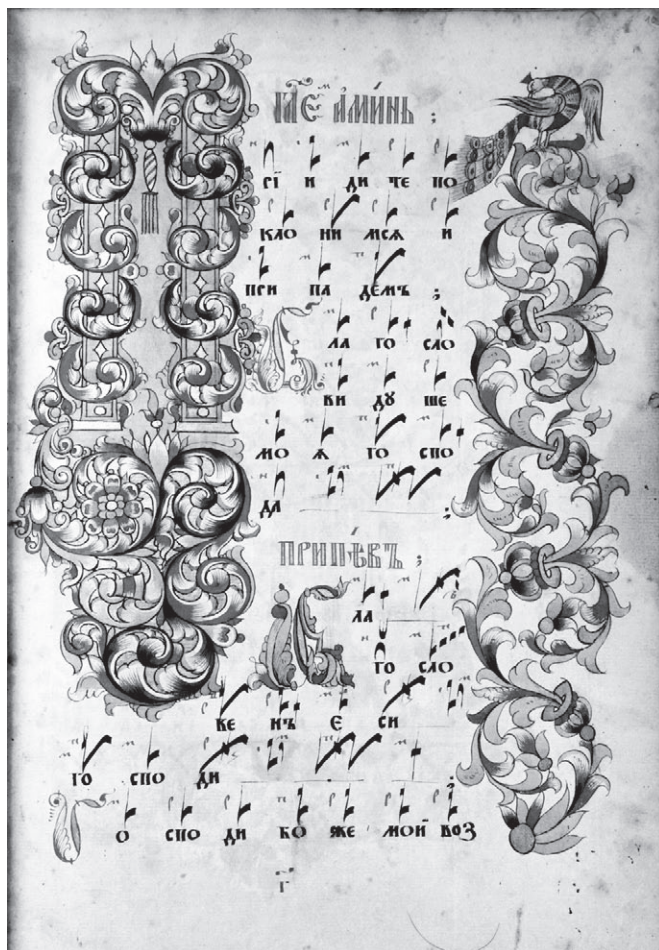 гл҃ѣ ами́нь ;
рїи ди те по
кло ни мсѧ и
при па демъ ;
ла го сло
ви дꙋ ше
мо ѧ го спо
да ;
припѣвъ ;
ла
го сло
ве нъ е си
го спо ди ;
о спо ди бо же мой воз
г